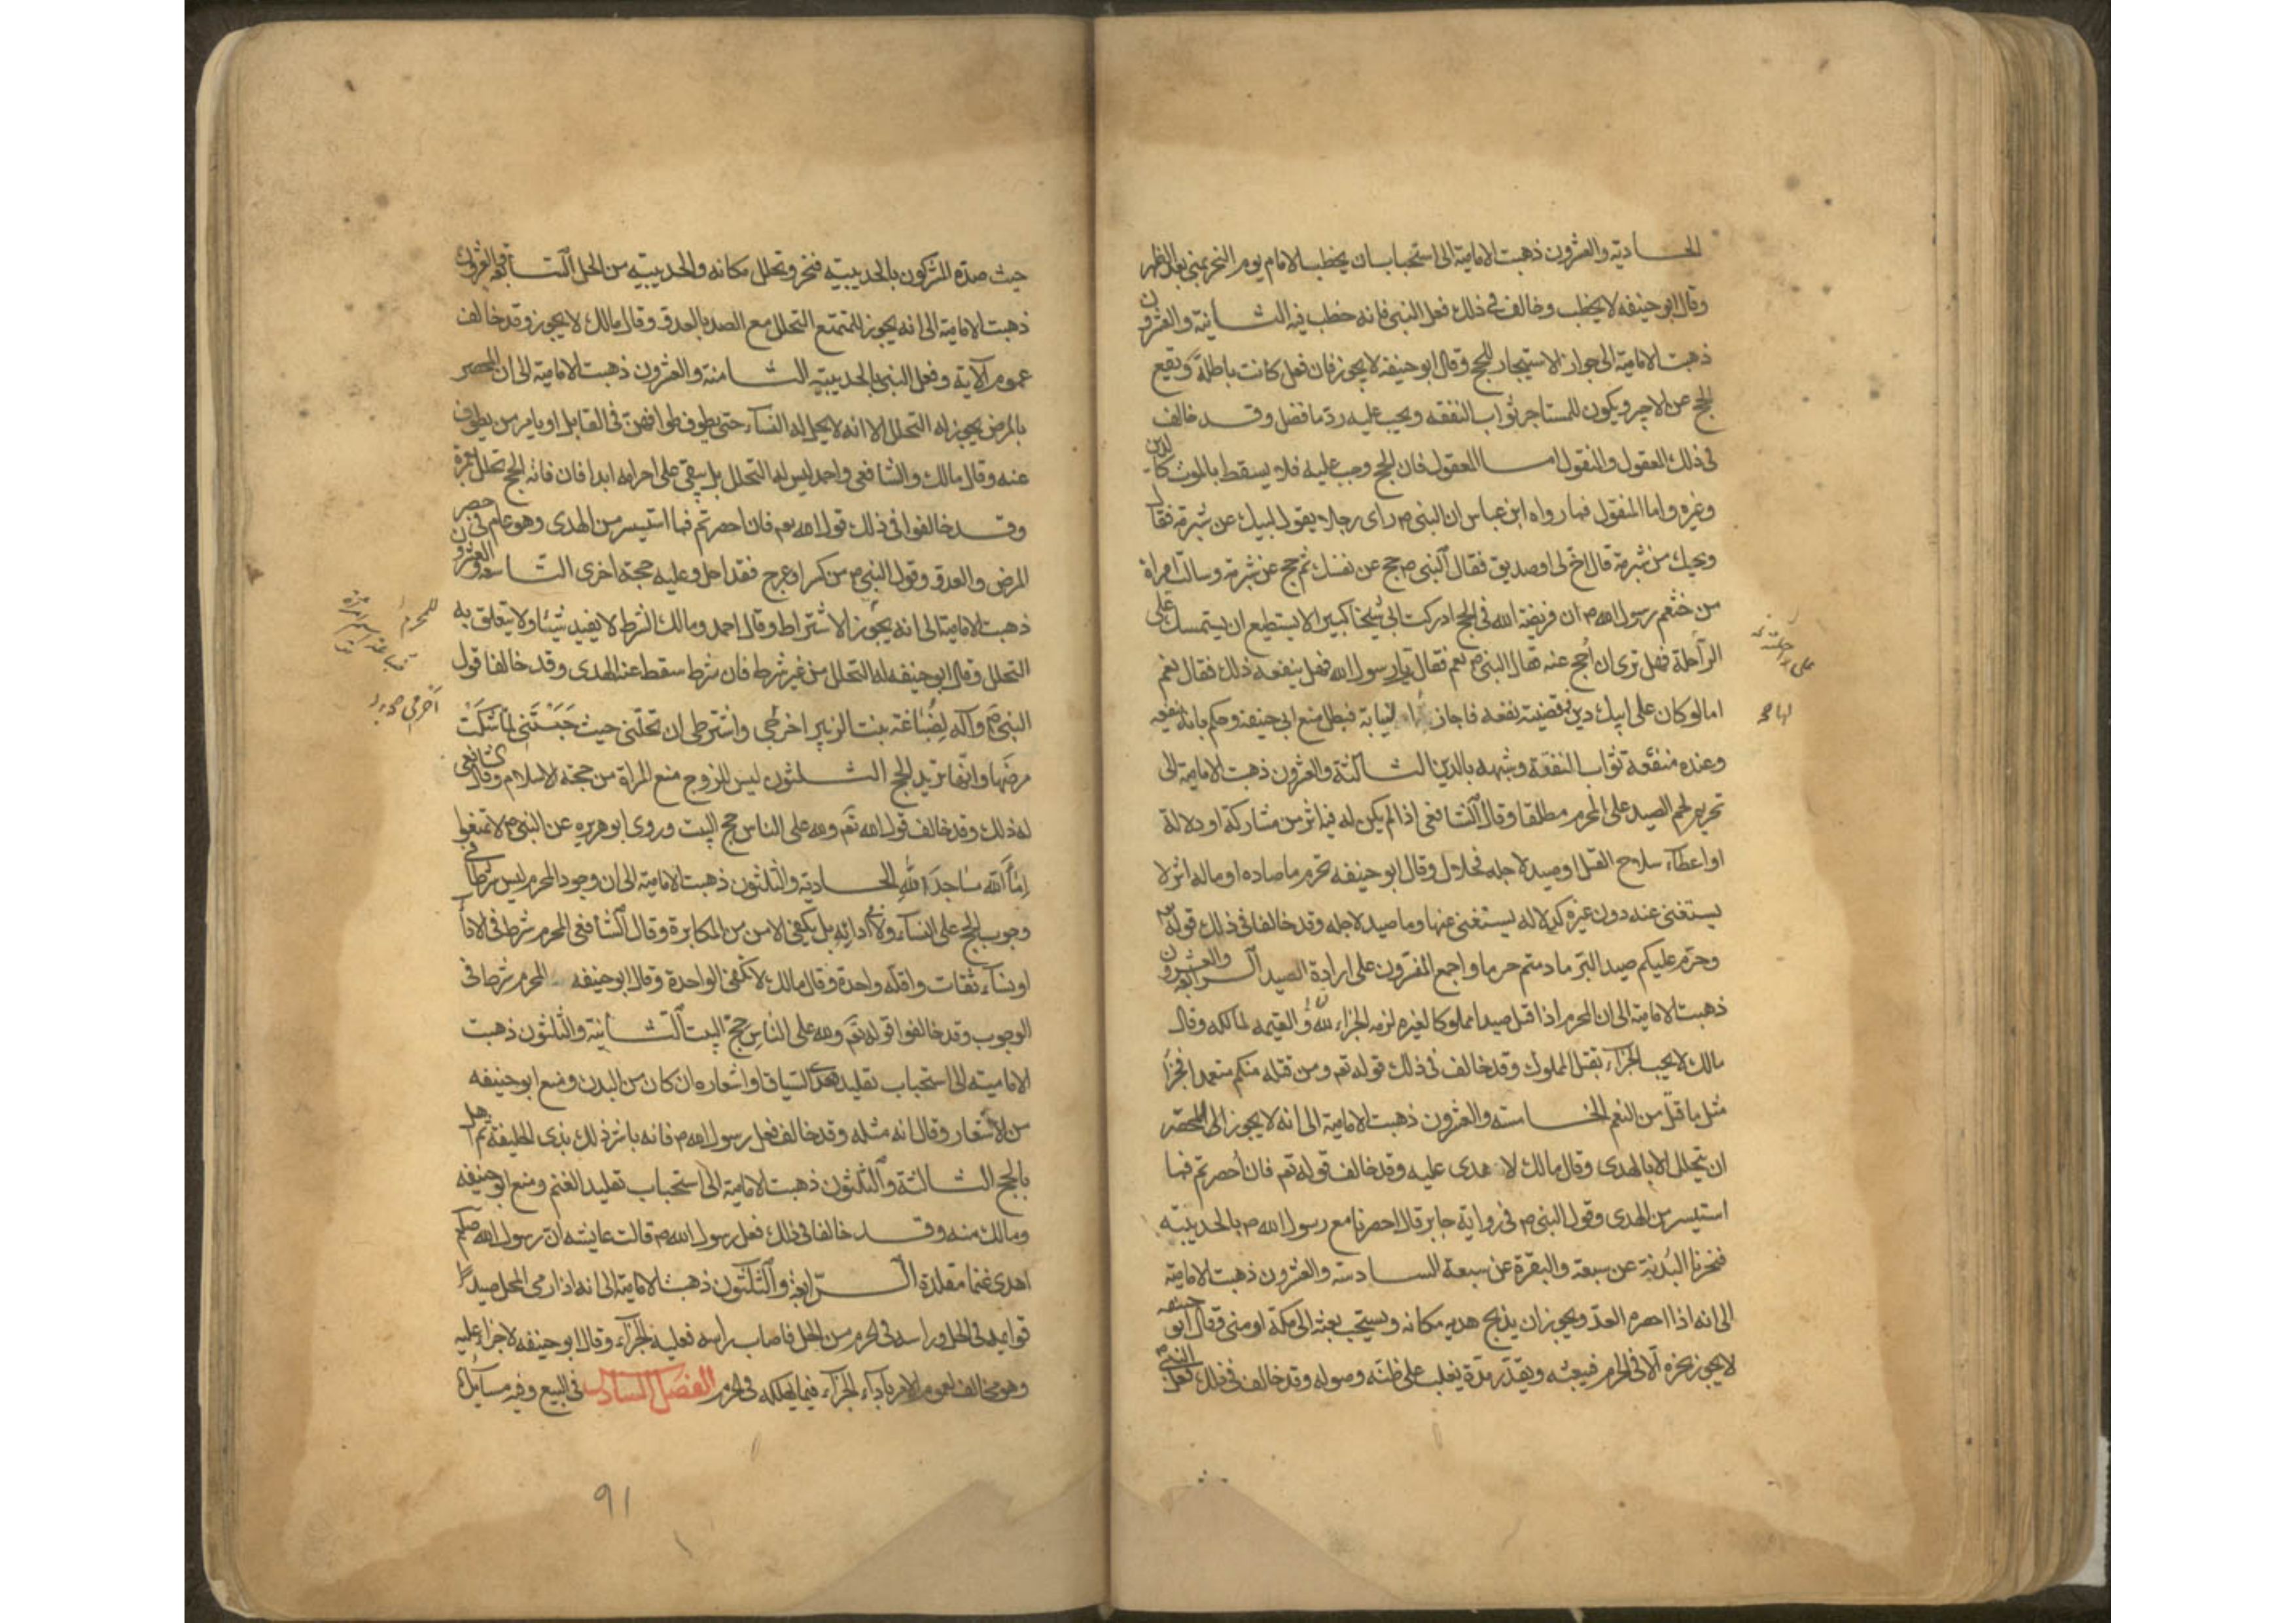 الحادية والعشرون ذهبت الامامية الى استحباب ان يخطب الامام يوم النحر بمنى بعد الظهر
وقال ابو حنيفه لا يخطب وخالف فى ذلك فعل النبى فانه خطب فيه الثانية والعشرون
ذهبت الامامية الى جواز الاستيجار للحج وقال ابو حنيفه لا يجوز فان فعل كانت باطلة ويقع
الحج عن الاجير ويكون للمستاجر ثواب النفقه ويجب عليه رد ما فضل وقد خالف
فى ذلك العقول والنقول اما العقول فان الحج وجب عليه فلا يسقط بالموت كالدين
وغيره واما المنقول فما رواه ابن عباس ان النبى م راى رجلا يقول لبيك عن شبرمة فقال
ويحك من شبرمة قال اخ لى او صديق فقال النبى م حج عن نفسك ثم حج عن شبرمة وسالت امراة
من خثعم رسول الله م ان فريضة الله فى الحج ادركت ابى شيخا كبيرا لا يستطيع ان يستمسك على
الراحلة فهل ترى ان احج عنه فقال النبى م نعم فقال يا رسول الله فهل ينفعه ذلك فقال نعم
اما لو كان على ابيك دين فقضيته نفعه فاجاز النيابة فبطل منع ابى حنيفة وحكم بانه ينفعه
وعنده منفعة ثواب النفقة وشبهه بالدين الثالثة والعشرون ذهبت الامامية الى
تحريم لحم الصيد على المحرم مطلقا وقال الشافعى اذا لم يكن له فيه اثر من مشاركة او دلالة
او اعطاء سلاح القتل او صيد لاجله فحلال وقال ابو حنيفه يحرم ما صاده او ماله اثر لا
يستغنى عنه دون غيره كدلاله يستغنى عنها وما صيد لاجله وقد خالفا فى ذلك قوله
وحرم عليكم صيد البر ما دمتم حرما واجمع المفسرون على ارادة الصيد الرابعة والعشرون
ذهبت الامامية الى ان المحرم اذا قتل صيدا مملوكا لغيره لزمه الجزاء لله والقيمه لمالكه وقال
مالك لا يجب الجزاء بقتل المملوك وقد خالف فى ذلك قوله تعم ومن قتله منكم متعمدا فجزا
مثل ما قتل من النعم الخامسة والعشرون ذهبت الامامية الى انه لا يجوز للمحصر
ان يتحلل الا بالهدى وقال مالك لا هدى عليه وقد خالف قوله تعم فان احصرتم فما
استيسر من الهدى وقول النبى م فى رواية جابر قال احصرنا مع رسول الله م بالحديبيه
فنحرنا البدنة عن سبعة والبقرة عن سبعة السادسة والعشرون ذهبت الامامية
الى انه اذا احصره العدو يجوز ان يذبح هديه مكانه ويستحب بعثه الى مكة او منى وقال ابو حنيفه
لا يجوز نحره الا فى الحرم فيبعثه ويقدر مدة يغلب على ظنه وصوله وقد خالف فى ذلك فعل النبى م
حيث صده المشركون بالحديبيه فنحر وتحلل مكانه والحديبيه من الحل السابعة والعشرون
ذهبت الامامية الى انه يجوز للمتمتع التحلل مع الصد بالعدو وقال مالك لا يجوز وقد خالف
عموم الآية وفعل النبى بالحديبيه الثامنة والعشرون ذهبت الامامية الى ان المحصر
بالمرض يجوز له التحلل الا انه لا يحل له النساء حتى يطوف طوافهن فى القابل او يامر من يطوف
عنه وقال مالك والشافعى واحمد ليس له التحلل بل يبقى على احرامه ابدا فان فاته الحج تحلل بعمرة
وقد خالفوا فى ذلك قول الله تعم فان احصرتم فما استيسر من الهدى وهو عام فى حصر
المرض والعدو وقول النبى م من كسر او عرج فقد احل وعليه حجة اخرى التاسعة والعشرون
ذهبت الامامية الى انه يجوز الاشتراط وقال احمد ومالك الشرط لا يفيد شيئا ولا يتعلق به
التحلل وقال ابو حنيفه له التحلل من غير شرط فان شرط سقط عنه الهدى وقد خالفا قول
النبى وآله لضباعة بنت الزبير اخرجى واشترطى ان تحلنى حيث حبستنى لما شكت
مرضها وانها تريد الحج الثلثون ليس للزوج منع المراة من حجة الاسلام وقال الشافعى
له ذلك وقد خالف قول الله تعم ولله على الناس حج البيت وروى ابو هريره عن النبى م لا تمنعوا
اماء الله مساجد الله الحادية والثلثون ذهبت الامامية الى ان وجود المحرم ليس شرطا فى
وجوب الحج على النساء ولا ادائه بل يكفى الامن من المكابرة وقال الشافعى المحرم شرط فى الاداء
او نساء ثقات واقله واحدة وقال مالك لا تكفى الواحدة وقال ابو حنيفه المحرم شرط فى
الوجوب وقد خالفوا قوله تعم ولله على الناس حج البيت الثانية والثلثون ذهبت
الامامية الى استحباب تقليد هدى السياق او اشعاره ان كان من البدن ومنع ابو حنيفه
من الاشعار وقال انه مثله وقد خالف فعل رسول الله م فانه باشر ذلك بذى الحليفة ثم اهل
بالحج الثالثة والثلثون ذهبت الامامية الى استحباب تقليد الغنم ومنع ابو حنيفه
ومالك منه وقد خالفا فى ذلك فعل رسول الله م قالت عايشه ان رسول الله
اهدى غنما مقلدة الرابعة والثلثون ذهبت الامامية الى انه اذا رمى المحل صيدا
قوايمه فى الحل وراسه فى الحرم من الحل فاصاب راسه فعليه الجزاء وقال ابو حنيفه لا جزاء عليه
وهو مخالف لعموم الامر باداء الجزاء فيما يهلكه فى الحرم الفصل السادس فى البيع وفيه مسايل
91